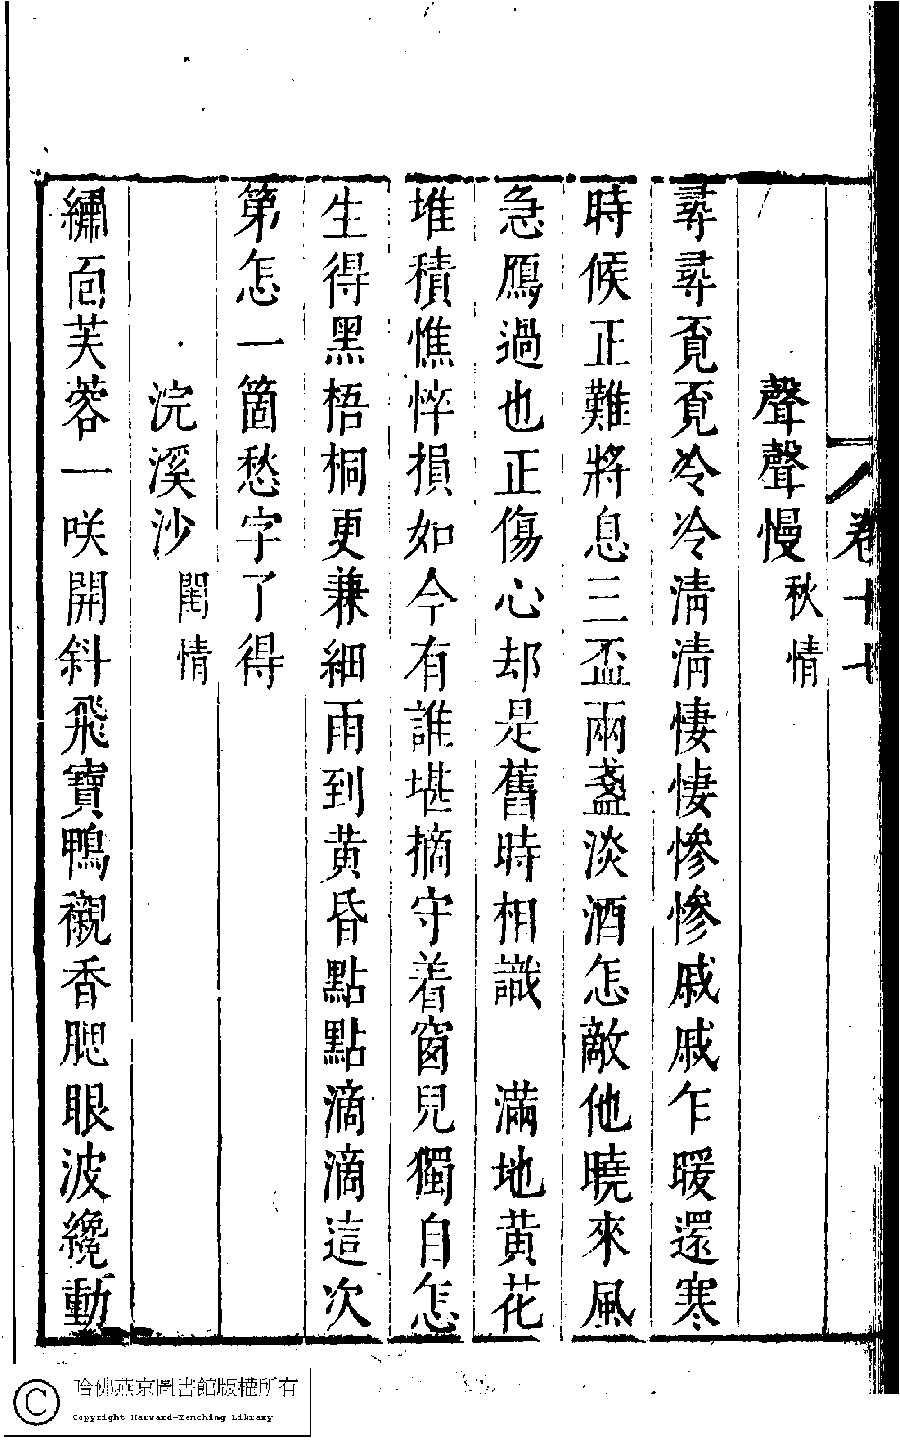 卷十十
聲聲慢 秋情
尋尋覔覔冷冷清清悽悽慘慘戚戚乍暖還寒
時候正難將息三盃兩盞淡酒怎敵他曉來風
急鴈過也正傷心却是舊時相識　滿地黄花
堆積憔悴損如今有誰堪摘守着窗兒獨自怎
生得黑梧桐更兼細雨到黄昏點點滴滴這次
第怎一箇愁字了得
浣溪沙 閨情
繡面芙蓉一咲開斜飛寶鴨襯香腮眼波纔動
哈佛燕京圖書館版權所有
Copyright Harvard-Yenching Library